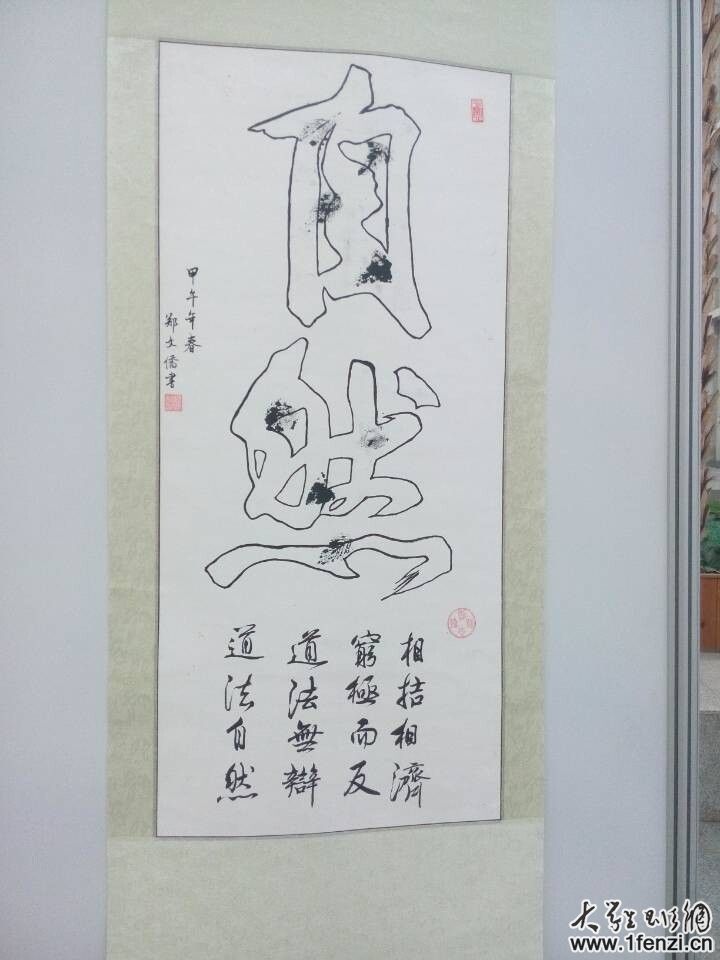 自然
相拮相濟
窮極而反
道法無辯
道法自然
甲午年春
郑文僑書
www.1fenzi.cn